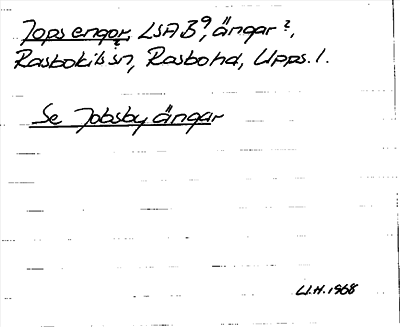 Jopsengar, LSA B9, ängar?,
Rasbokils sn, Rasbo hd, Upps. l.
Se Jobsby ängar
U.H. 1968